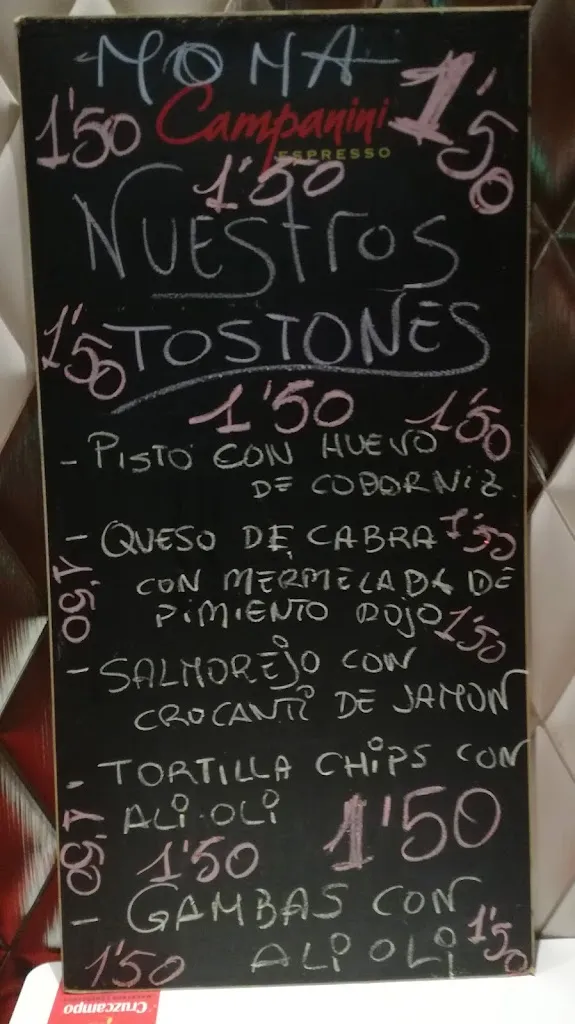 MOMA
1'50 Campanini 1'50
ESPRESSO
1'50
NUESTROS
1'50 TOSTONES
1'50 1'50
- PISTO CON HUEVO
DE CODORNIZ
- QUESO DE CABRA 1'50
CON MERMELADA DE
1'50 PIMIENTO ROJO 1'50
- SALMOREJO CON
CROCANTI DE JAMON
- TORTILLA CHIPS CON
ALI·OLI 1'50
1'50 1'50
- GAMBAS CON
ALI OLI 1'50
1'50
Cruzcampo